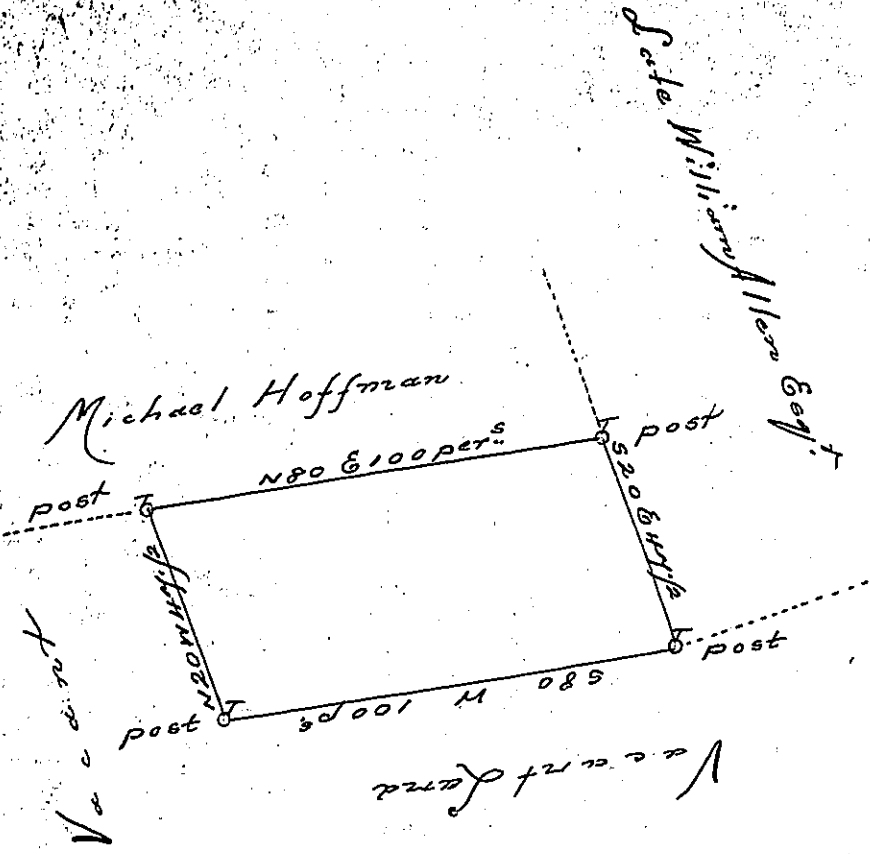 Late William Allen Esqr.
Michael Hoffman
N80 E 100 pers
post
post
S20 E 47 1/2
post
S80 W 100 ps
post
N20 W 47 1/2
Vacant
Vacant Land